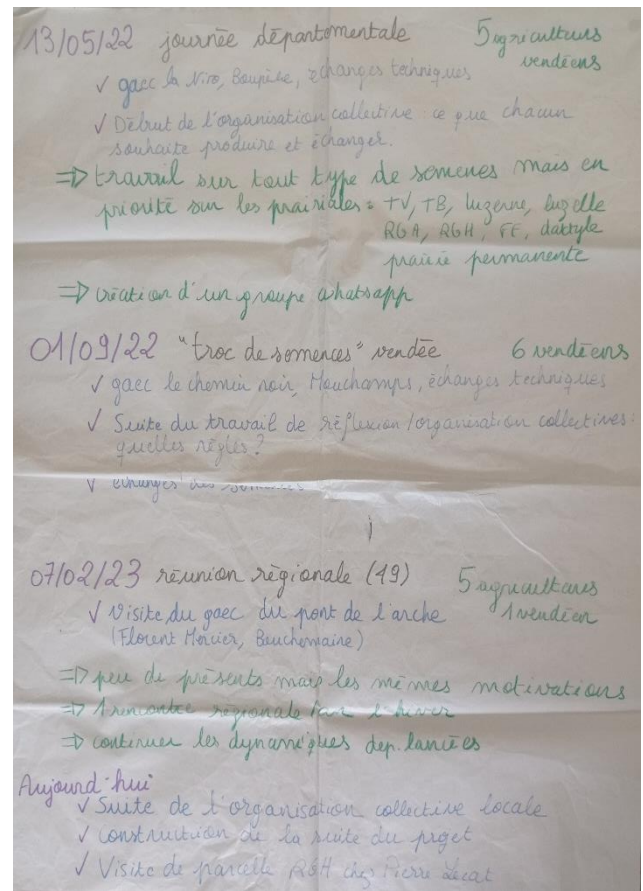 13/05/22 journée départementale 5 agriculteurs
vendéens
✓ gaec la Niro, Boupère, échanges techniques
✓ Début de l'organisation collective : ce que chacun
souhaite produire et échanger.
=> travail sur tout type de semences mais en
priorité sur les prairiales : TV, TB, luzerne, luzelle
RGA, RGH, FE, dactyle
prairie permanente
=> création d'un groupe whatsapp
01/09/22 "troc de semences" vendée 6 vendéens
✓ gaec le chemin noir, Mouchamps, échanges techniques
✓ Suite du travail de réflexion/organisation collectives :
quelles règles ?
✓ échanges des semences
07/02/23 réunion régionale (49) 5 agriculteurs
1 vendéen
✓ Visite du gaec du pont de l'arche
(Florent Mercier, Bouchemaine)
=> peu de présents mais les mêmes motivations
=> 1 rencontre régionale par hiver
=> continuer les dynamiques dep. lancées
Aujourd'hui
✓ Suite de l'organisation collective locale
✓ construction de la suite du projet
✓ Visite de parcelle RGH chez Pierre Lecat